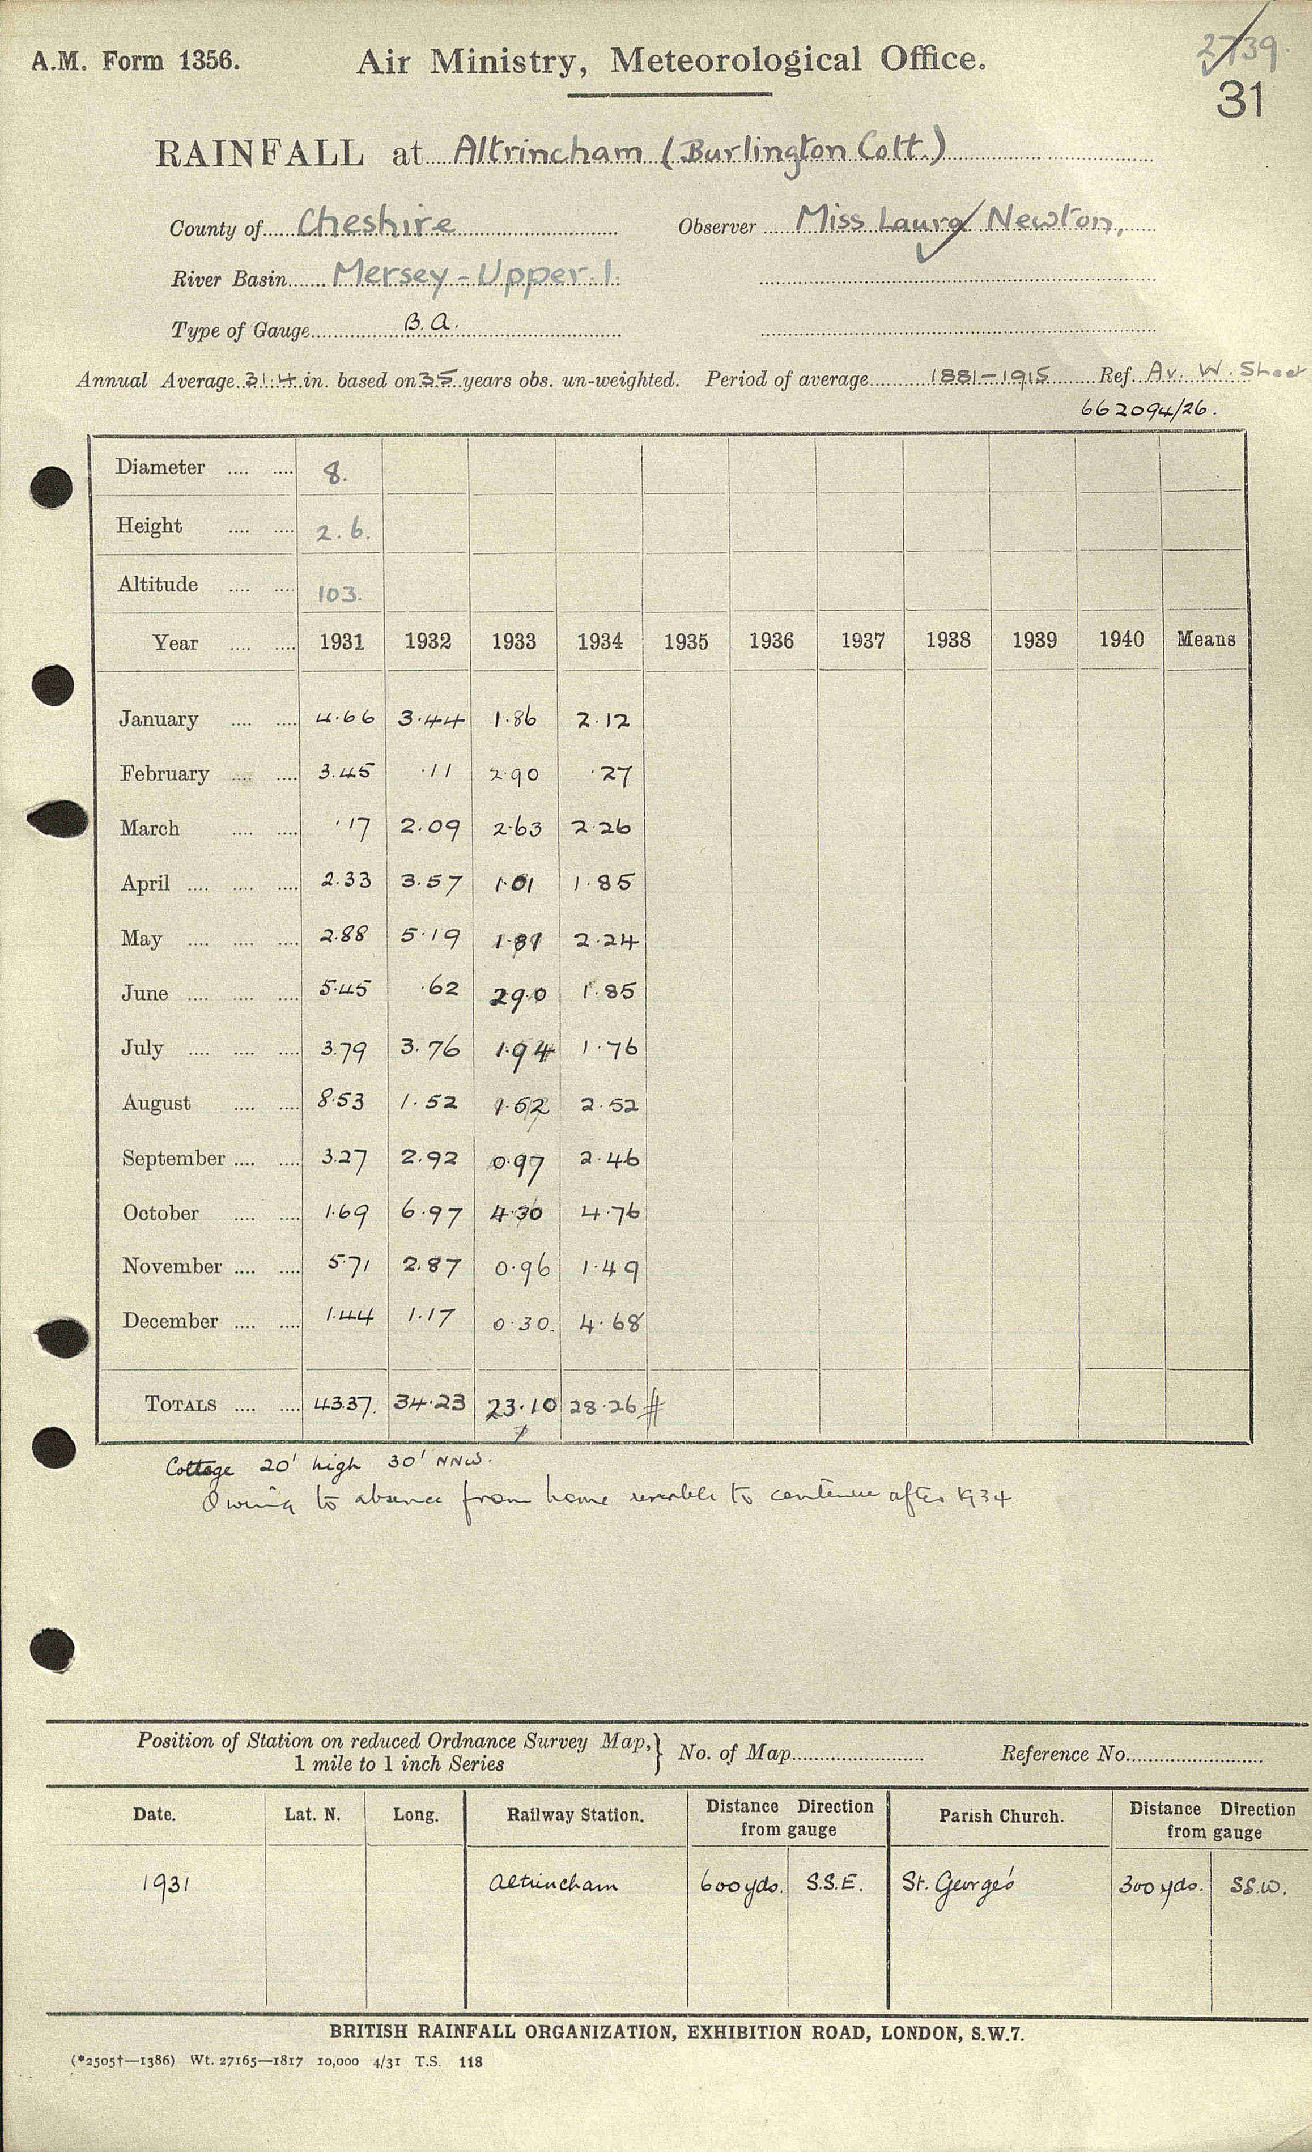 A.M. Form 1356.
Air Ministry, Meteorological Office.
2739
31
RAINFALL at Altrincham (Burlington Cott.)
County of Cheshire Observer Miss Laura Newton,
River Basin Mersey - Upper. 1.
Type of Gauge B.A.
Annual Average 31.4 in. based on 35 years obs. un-weighted. Period of average 1881-1915 Ref. Av. W. Sheet
662094/26.
Diameter .... .... 8.
Height .... .... 2.6.
Altitude .... .... 103.
Year .... .... 1931 1932 1933 1934 1935 1936 1937 1938 1939 1940 Means
January .... .... 4.66 3.44 1.86 2.12
February .... .... 3.45 .11 2.90 .27
March .... .... .17 2.09 2.63 2.26
April .... .... .... 2.33 3.57 1.01 1.85
May .... .... .... 2.88 5.19 1.81 2.24
June .... .... .... 5.45 .62 2.90 1.85
July .... .... .... 3.79 3.76 1.94 1.76
August .... .... 8.53 1.52 1.52 2.52
September .... .... 3.27 2.92 0.97 2.46
October .... .... 1.69 6.97 4.30 4.76
November .... .... 5.71 2.87 0.96 1.49
December .... .... 1.44 1.17 0.30. 4.68
TOTALS .... .... 43.37. 34.23 23.10 28.26 #
Cottage 20' high 30' NNW.
Owing to absence from home unable to continue after 1934
Position of Station on reduced Ordnance Survey Map, } No. of Map Reference No.
1 mile to 1 inch Series
Date. Lat. N. Long. Railway Station. Distance Direction from gauge Parish Church. Distance Direction from gauge
1931 Altrincham 600 yds. S.S.E. St. George's 300 yds. SS.W.
BRITISH RAINFALL ORGANIZATION, EXHIBITION ROAD, LONDON, S.W.7.
(*2505†—1386) Wt. 27165—1817 10,000 4/31 T.S. 118